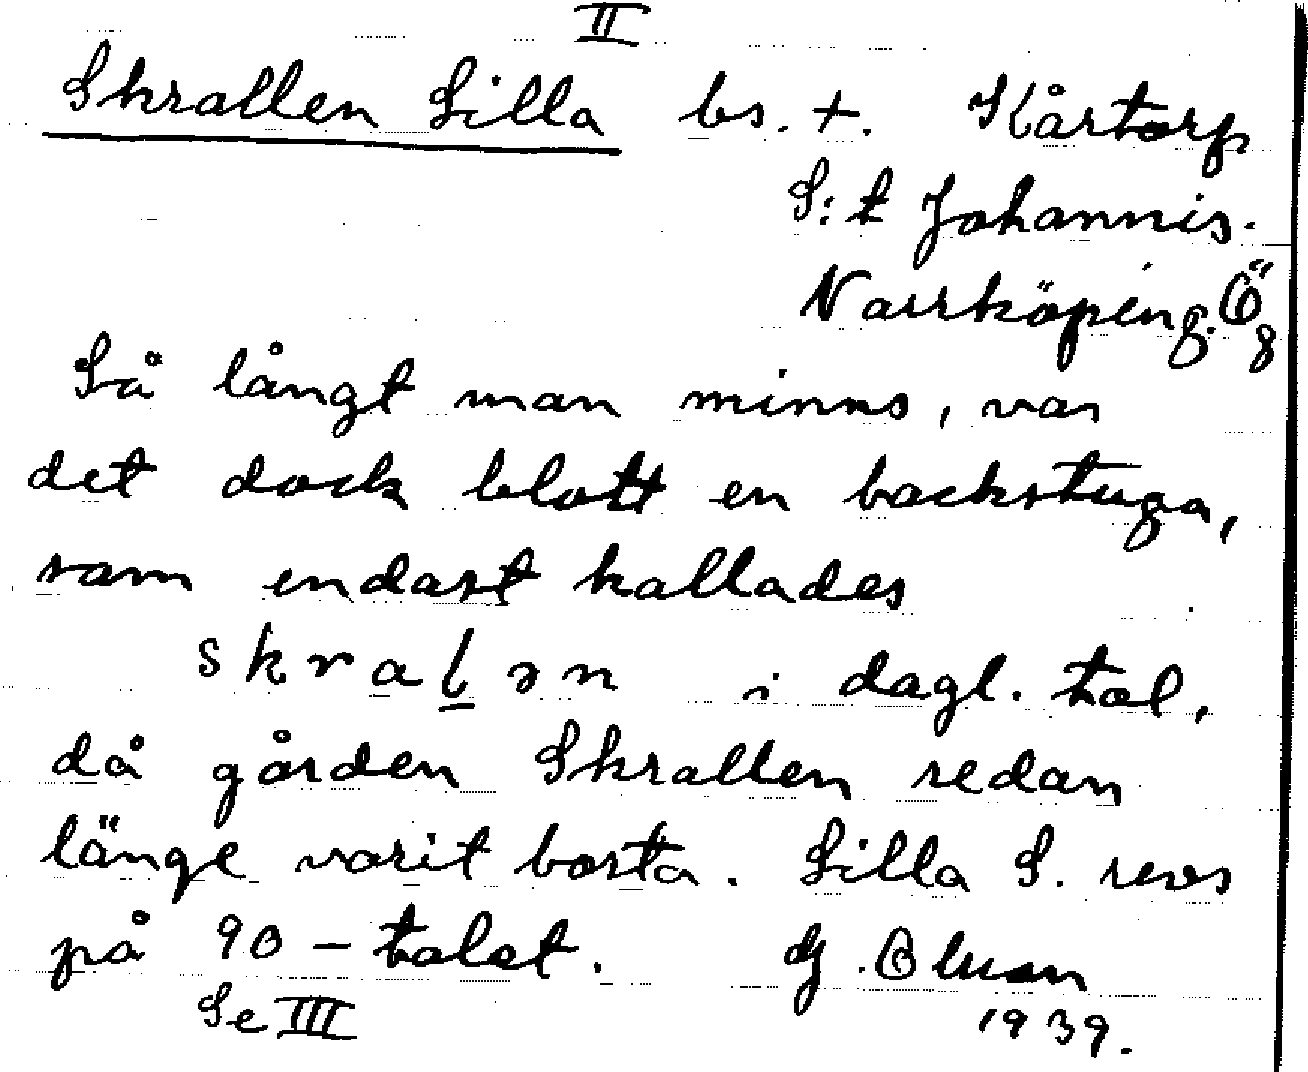 II
Skrallen Lilla bs. +. Kårtorp
S:t Johannis.
Norrköping. Ög
Så långt man minns, var
det dock blott en backstuga,
som endast kallades
skraḻən i dagl. tal,
då gården Skrallen redan
länge varit borta. Lilla S. revs
på 90-talet.
Se III 1939.